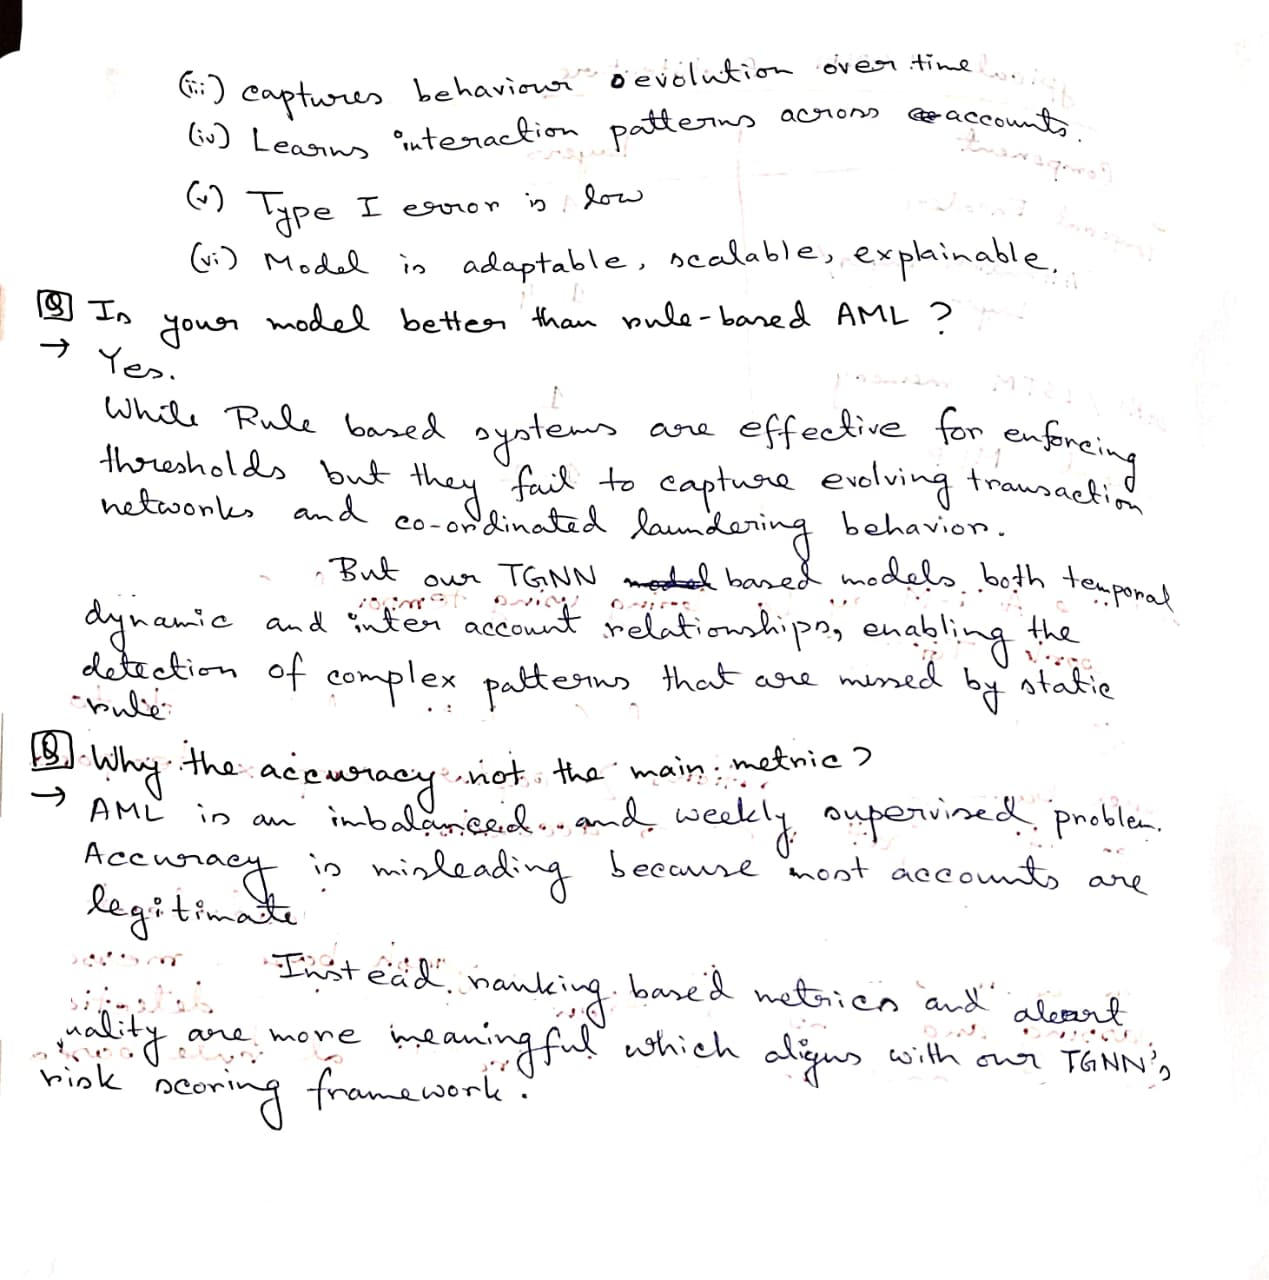 (iii) captures behaviour evolution over time
(iv) Learns interaction patterns across accounts.
(v) Type I error is low
(vi) Model is adaptable, scalable, explainable.
Q Is your model better than rule-based AML ?
→ Yes.
While Rule based systems are effective for enforcing
thresholds but they fail to capture evolving transaction
networks and co-ordinated laundering behavior.
But our TGNN based models both temporal
dynamic and inter account relationships, enabling the
detection of complex patterns that are missed by static
rule.
Q Why the accuracy not the main metric ?
→ AML is an imbalanced and weekly supervised problem.
Accuracy is misleading because most accounts are
legitimate
Instead ranking based metrics and aleart
quality are more meaningful which aligns with our TGNN's
risk scoring framework.